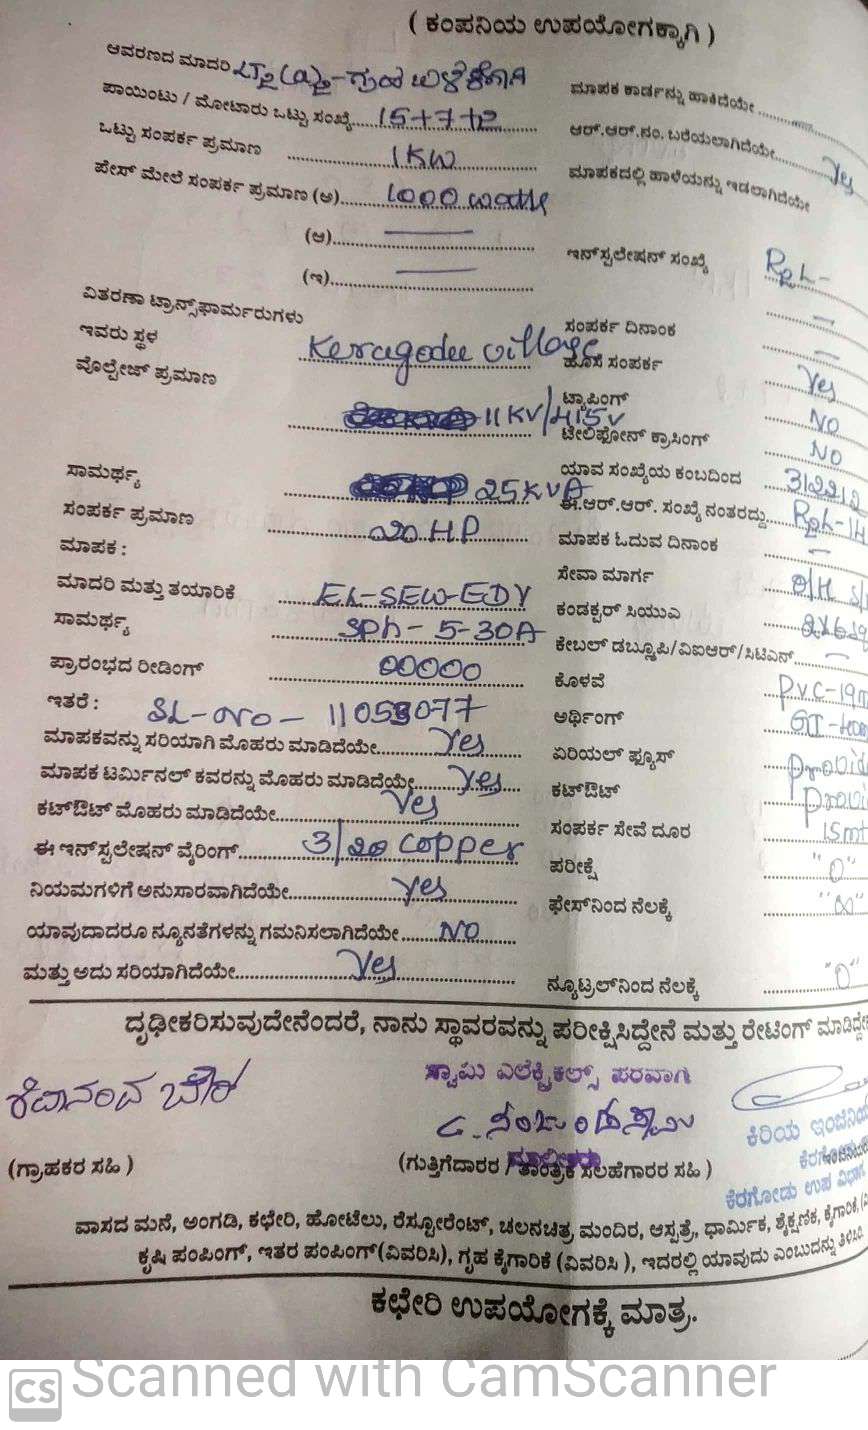 ( ಕಂಪನಿಯ ಉಪಯೋಗಕ್ಕಾಗಿ )
ಆವರಣದ ಮಾದರಿ
ಮಾಪಕ ಕಾರ್ಡನ್ನು ಹಾಕಿದೆಯೇ
ಪಾಯಿಂಟು / ಮೋಟಾರು ಒಟ್ಟು ಸಂಖ್ಯೆ 15+7+2
ಆರ್.ಆರ್.ನಂ. ಬರೆಯಲಾಗಿದೆಯೇ Yes
ಒಟ್ಟು ಸಂಪರ್ಕ ಪ್ರಮಾಣ 1KW
ಮಾಪಕದಲ್ಲಿ ಹಾಳೆಯನ್ನು ಇಡಲಾಗಿದೆಯೇ
ಪೇಸ್ ಮೇಲೆ ಸಂಪರ್ಕ ಪ್ರಮಾಣ (ಅ) 1000
(ಆ)
ಇನ್‌ಸ್ಪಲೇಷನ್ ಸಂಖ್ಯೆ
(ಇ)
ವಿತರಣಾ ಟ್ರಾನ್ಸ್‌ಫಾರ್ಮರುಗಳು
ಸಂಪರ್ಕ ದಿನಾಂಕ
ಇವರು ಸ್ಥಳ Keragodu village
ಹೊಸ ಸಂಪರ್ಕ Yes
ವೊಲ್ಟೇಜ್ ಪ್ರಮಾಣ 11KV/415V
ಟ್ಯಾಪಿಂಗ್ NO
ಟೇಲಿಫೋನ್ ಕ್ರಾಸಿಂಗ್ NO
ಸಾಮರ್ಥ್ಯ 25KVA
ಯಾವ ಸಂಖ್ಯೆಯ ಕಂಬದಿಂದ
ಈ.ಆರ್.ಆರ್. ಸಂಖ್ಯೆ ನಂತರದ್ದು
ಸಂಪರ್ಕ ಪ್ರಮಾಣ 20 HP
ಮಾಪಕ ಓದುವ ದಿನಾಂಕ
ಮಾಪಕ :
ಸೇವಾ ಮಾರ್ಗ O/H
ಮಾದರಿ ಮತ್ತು ತಯಾರಿಕೆ EL-SEW-EDY
ಕಂಡಕ್ಟರ್ ಸಿಯುಎ
ಸಾಮರ್ಥ್ಯ SPh- 5-30A
ಕೇಬಲ್ ಡಬ್ಲ್ಯೂಪಿ/ವಿಐಆರ್/ಸಿಟಿಎನ್
ಪ್ರಾರಂಭದ ರೀಡಿಂಗ್ 00000
ಕೊಳವೆ
ಇತರೆ : SL-No -
ಅರ್ಥಿಂಗ್
ಮಾಪಕವನ್ನು ಸರಿಯಾಗಿ ಮೊಹರು ಮಾಡಿದೆಯೇ Yes
ಏರಿಯಲ್ ಫ್ಯೂಸ್
ಮಾಪಕ ಟರ್ಮಿನಲ್ ಕವರನ್ನು ಮೊಹರು ಮಾಡಿದೆಯೇ Yes
ಕಟ್‌ಔಟ್
ಕಟ್‌ಔಟ್ ಮೊಹರು ಮಾಡಿದೆಯೇ Yes
ಸಂಪರ್ಕ ಸೇವೆ ದೂರ 15mt
ಈ ಇನ್‌ಸ್ಪಲೇಷನ್ ವೈರಿಂಗ್ 3/20 copper
ಪರೀಕ್ಷೆ "0"
ನಿಯಮಗಳಿಗೆ ಅನುಸಾರವಾಗಿದೆಯೇ Yes
ಫೇಸ್‌ನಿಂದ ನೆಲಕ್ಕೆ "∞"
ಯಾವುದಾದರೂ ನ್ಯೂನತೆಗಳನ್ನು ಗಮನಿಸಲಾಗಿದೆಯೇ NO
ಮತ್ತು ಅದು ಸರಿಯಾಗಿದೆಯೇ Yes
ನ್ಯೂಟ್ರಲ್‌ನಿಂದ ನೆಲಕ್ಕೆ "0"
ದೃಢೀಕರಿಸುವುದೇನೆಂದರೆ, ನಾನು ಸ್ಥಾವರವನ್ನು ಪರೀಕ್ಷಿಸಿದ್ದೇನೆ ಮತ್ತು ರೇಟಿಂಗ್
ಸ್ವಾಮಿ ಎಲೆಕ್ಟ್ರಿಕಲ್ಸ್ ಪರವಾಗಿ
ಕಿರಿಯ
(ಗ್ರಾಹಕರ ಸಹಿ )
(ಗುತ್ತಿಗೆದಾರರ / ತಾಂತ್ರಿಕ ಸಲಹೆಗಾರರ ಸಹಿ )
ಕೆರಗೋಡು ಉಪ
ವಾಸದ ಮನೆ, ಅಂಗಡಿ, ಕಛೇರಿ, ಹೋಟೆಲು, ರೆಸ್ಟೋರೆಂಟ್, ಚಲನಚಿತ್ರ ಮಂದಿರ, ಆಸ್ಪತ್ರೆ, ಧಾರ್ಮಿಕ, ಶೈಕ್ಷಣಿಕ, ಕೈಗಾರಿಕೆ,
ಕೃಷಿ ಪಂಪಿಂಗ್, ಇತರ ಪಂಪಿಂಗ್(ವಿವರಿಸಿ), ಗೃಹ ಕೈಗಾರಿಕೆ (ವಿವರಿಸಿ ), ಇದರಲ್ಲಿ ಯಾವುದು ಎಂಬುದನ್ನು ತಿಳಿಸಿ.
ಕಛೇರಿ ಉಪಯೋಗಕ್ಕೆ ಮಾತ್ರ.
CS Scanned with CamScanner